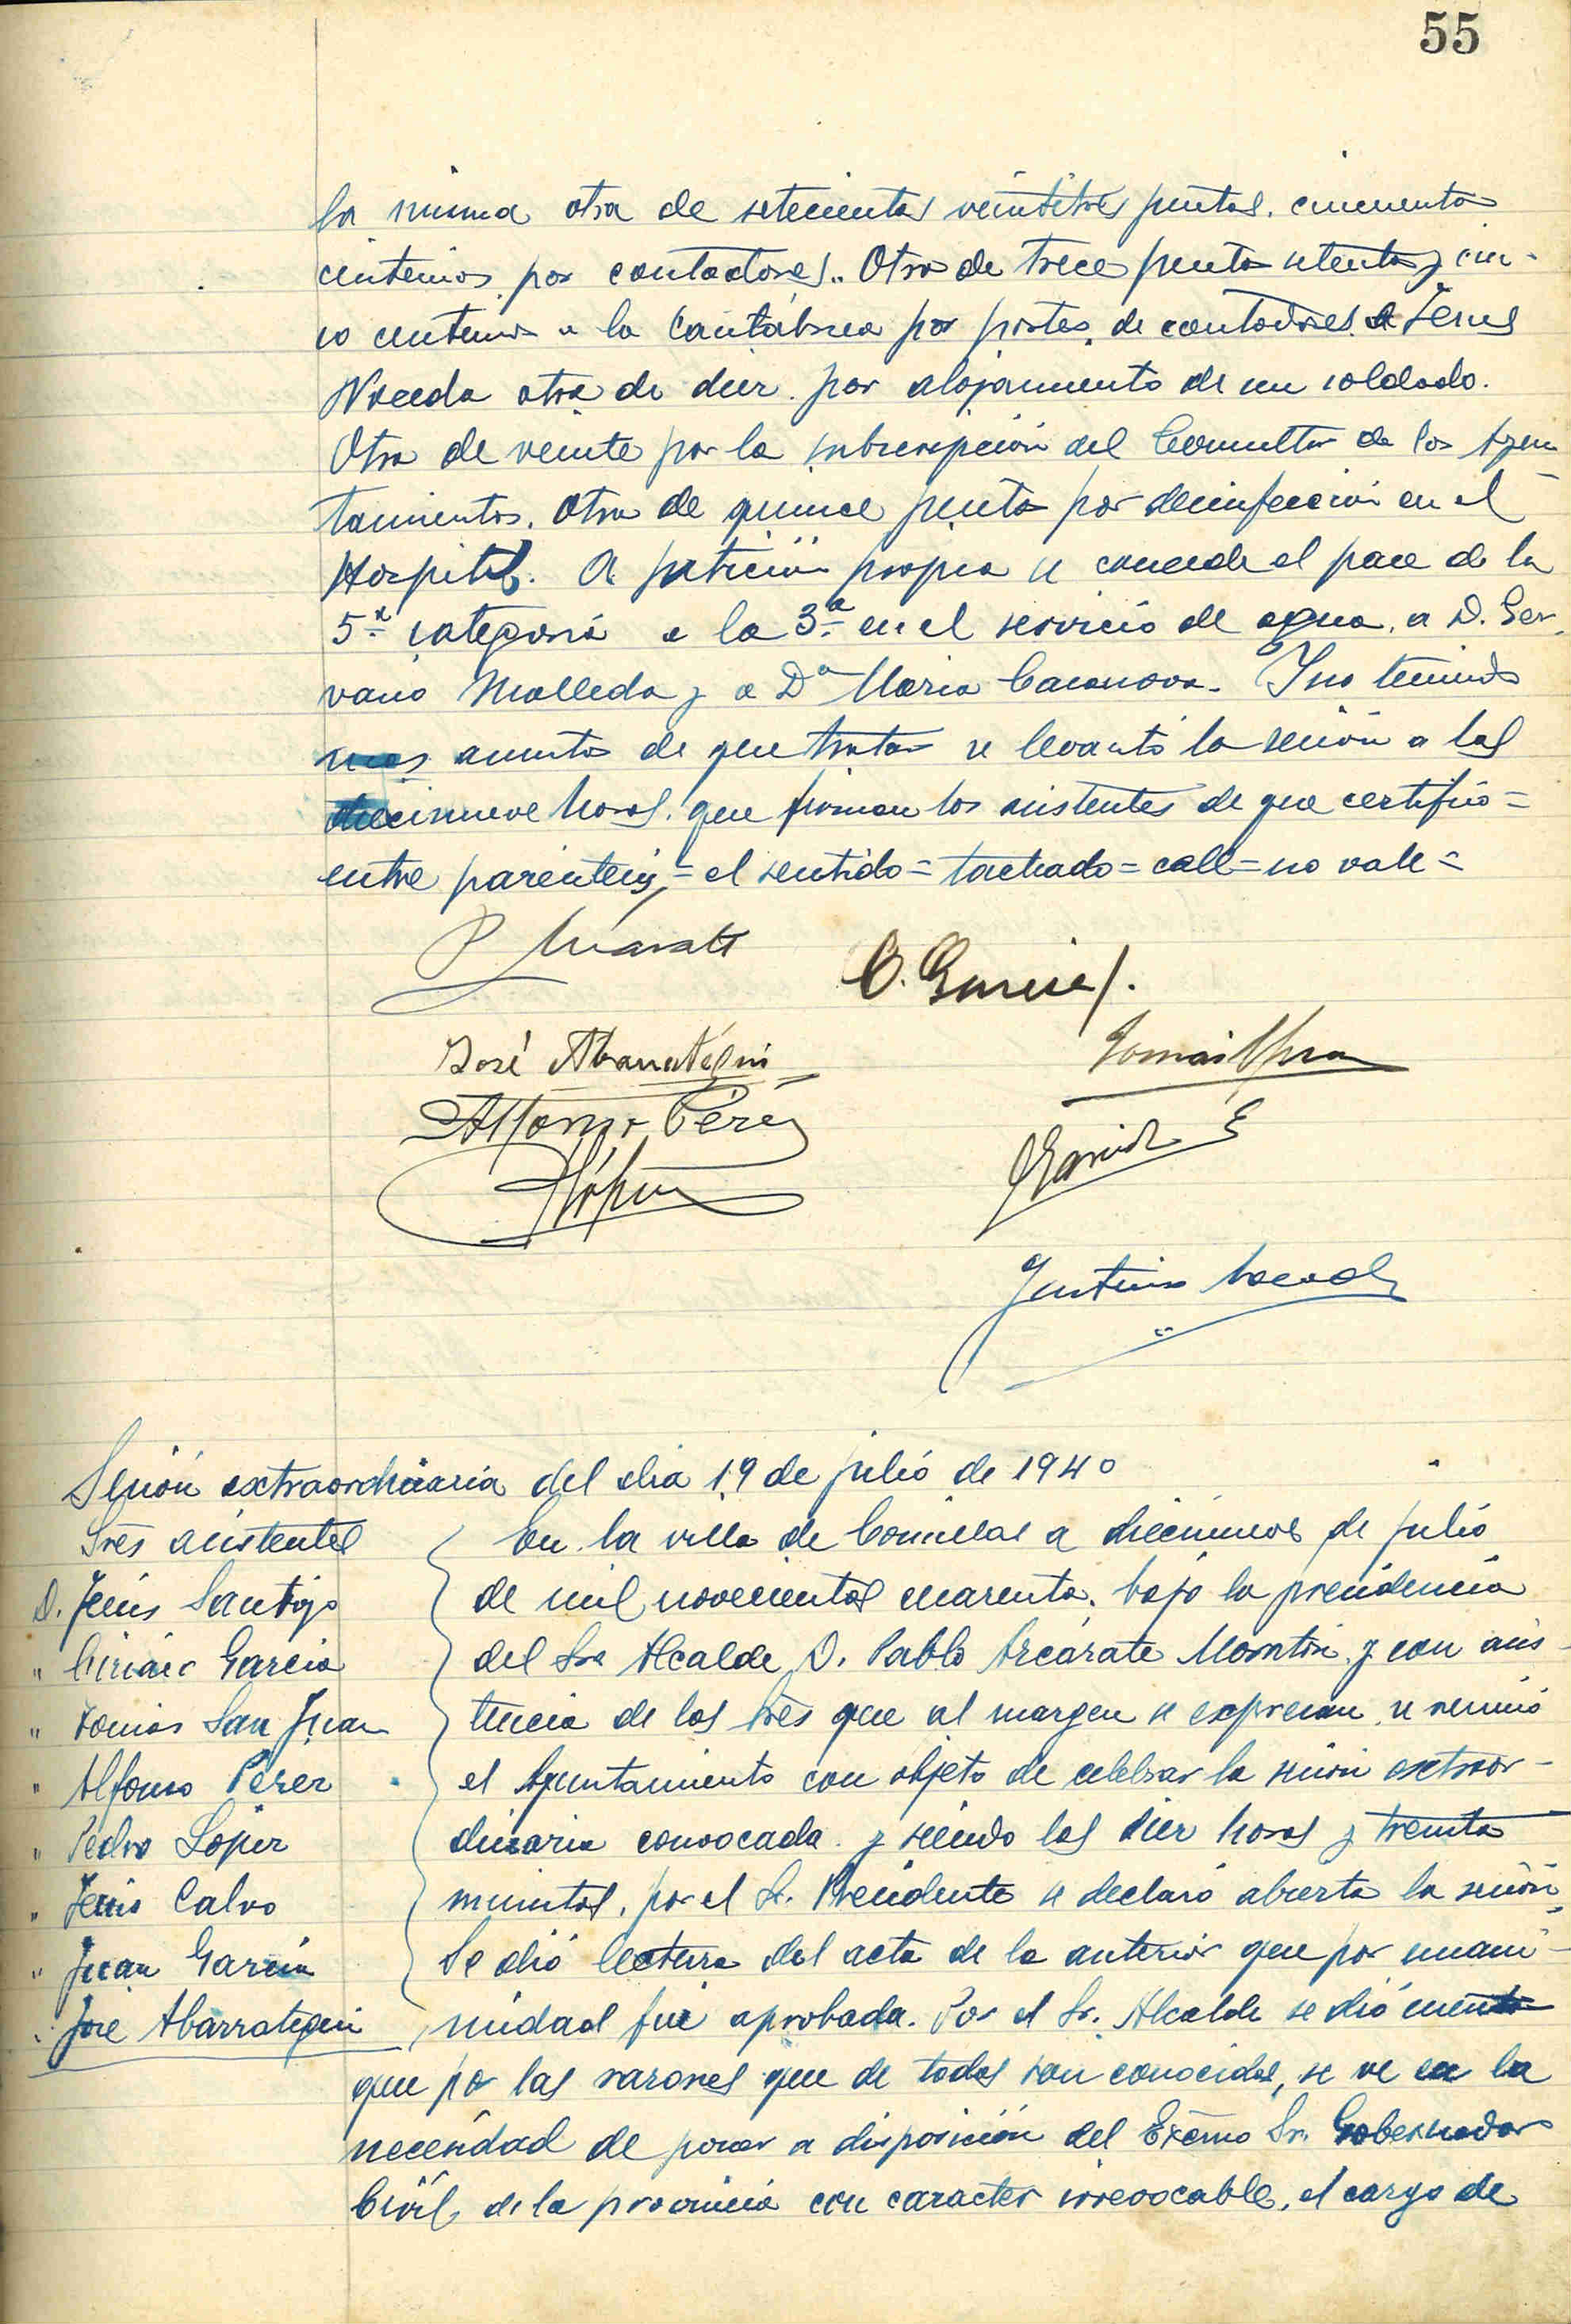 55
la misma otra de setecientas veintitres pesetas cincuenta
centimos por contadores. Otra de trece pesetas setenta y cin-
co centimos a la Cantábrica por portes de contadores. A Jesus
Noceda otra de diez por alojamiento de un soldado.
Otra de veinte por la subscripción del Consultor de los Ayun
tamientos. Otra de quince pesetas por desinfección en el
Hospital. A petición propia se concede el pase de la
5ª categoria a la 3ª en el servicio de agua, a D. Ger
vasio Molleda y a Dª Maria Casanova. Y no teniendo
mas asuntos de que tratar se levantó la sesión a las
diecinueve horas, que firman los asistentes de que certifico =
entre parentesis = el sentido = tachado = call = no vale =
P.
C. Garcia
José Abarrategui
Tomás
Alfonso Pérez
García
López
Justino
Sesión extraordinaria del dia 19 de julio de 1940
Sres asistentes
D. Jesús Santigo
" Ciriaco Garcia
" Tomás San Juan
" Alfonso Pérez
" Pedro López
" Jesús Calvo
" Juan García
" José Abarrategui
En la villa de Comillas a diecinueve de julio
de mil novecientos cuarenta, bajo la presidencia
del Sr Alcalde D. Pablo Arcárate Montin y con asis-
tencia de los Sres que al margen se expresan, se reunió
el Ayuntamiento con objeto de celebrar la sesión extraor-
dinaria convocada y siendo las diez horas y treinta
minutos, por el Sr. Presidente se declaró abierta la sesión
Se dió lectura del acta de la anterior que por unani-
midad fué aprobada. Por el Sr. Alcalde se dió cuenta
que por las razones que de todos son conocidas, se ve en la
necesidad de poner a disposición del Excmo Sr. Gobernador
Civil de la provincia con caracter irrevocable, el cargo de